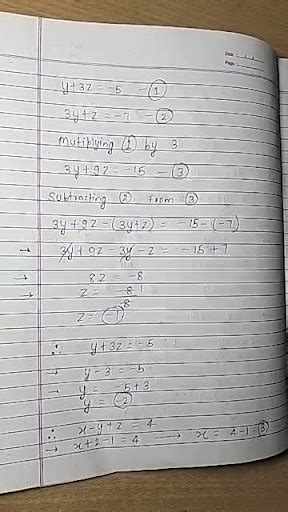 Date
Page
y+3z = -5 - ①
3y+z = -7 - ②
mutiplying ① by 3
3y+9z = -15 - ③
subtracting ② from ③
3y+9z - (3y+z) = -15-(-7)
→ 3y+9z-3y-z = -15+7
→ 8z = -8
→ z = -8
8
z = -1
∴ y+3z = -5
→ y-3 = -5
→ y = -5+3
y = -2
∴ x-y+z = 4
→ x+2-1 = 4 → x = 4-1=3